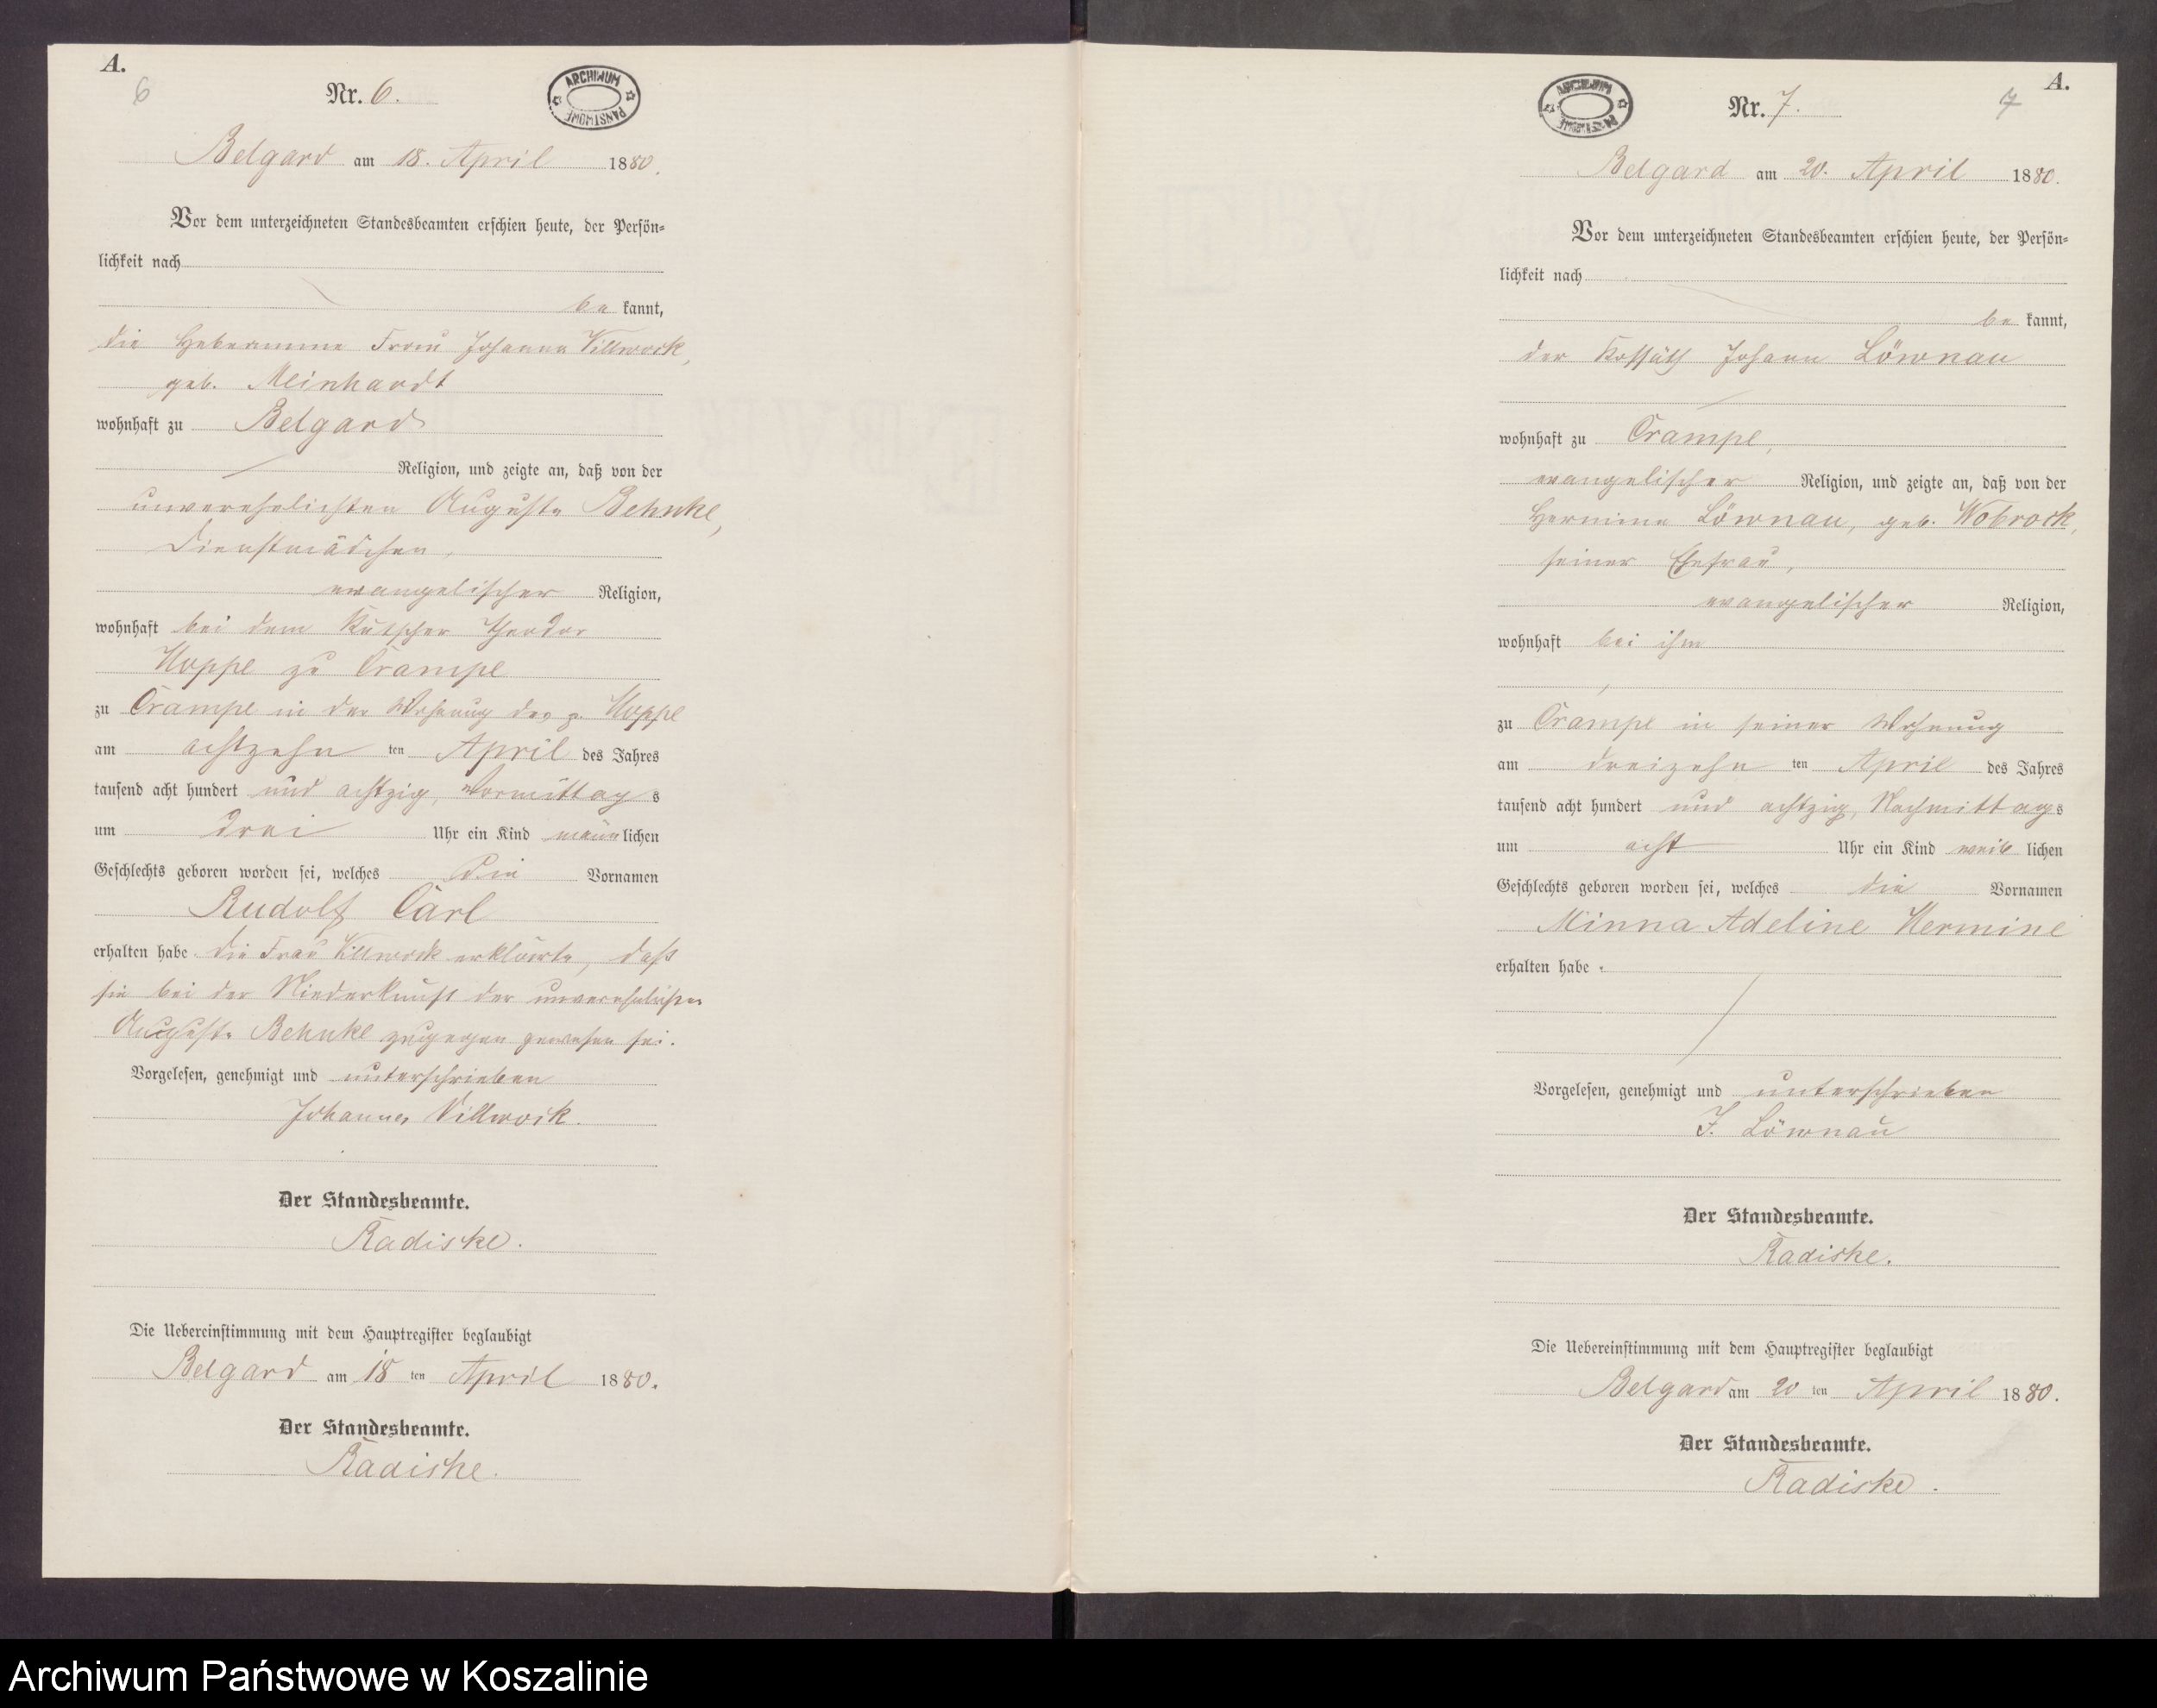 A.
6
Nr. 6.
ARCHIWUM PAŃSTWOWE
Belgard am 18. April 1880.
Vor dem unterzeichneten Standesbeamten erschien heute, der Persön=
lichkeit nach
be kannt,
die Hebeamme Frau Johanna Villwock,
geb. Meinhardt
wohnhaft zu Belgard
Religion, und zeigte an, daß von der
unverehelichten Auguste Behnke,
Dienstmädchen,
evangelischer Religion,
wohnhaft bei dem Kutscher Theodor
Hoppe zu Crampe
zu Crampe in der Wohnung des p. Hoppe
am achtzehn ten April des Jahres
tausend acht hundert und achtzig, Vormittag s
um drei Uhr ein Kind männ lichen
Geschlechts geboren worden sei, welches die Vornamen
Rudolf Carl
erhalten habe. Die Frau Villwock erklärte, daß
sie bei der Niederkunft der unverehelichten
Auguste Behnke zugegen gewesen sei.
Vorgelesen, genehmigt und unterschrieben
Johanna Villwock.
Der Standesbeamte.
Radiske.
Die Uebereinstimmung mit dem Hauptregister beglaubigt
Belgard am 18 ten April 1880.
Der Standesbeamte.
Radiske.
A.
7
Nr. 7.
ARCHIWUM PAŃSTWOWE
Belgard am 20. April 1880.
Vor dem unterzeichneten Standesbeamten erschien heute, der Persön=
lichkeit nach
be kannt,
der Kossäth Johann Löwnau
wohnhaft zu Crampe,
evangelischer Religion, und zeigte an, daß von der
Hermine Löwnau, geb. Wobrock,
seiner Ehefrau,
evangelischer Religion,
wohnhaft bei ihm
zu Crampe in seiner Wohnung
am dreizehn ten April des Jahres
tausend acht hundert und achtzig, Nachmittag s
um acht Uhr ein Kind weib lichen
Geschlechts geboren worden sei, welches die Vornamen
Minna Adeline Hermine
erhalten habe.
Vorgelesen, genehmigt und unterschrieben
J. Löwnau
Der Standesbeamte.
Radiske.
Die Uebereinstimmung mit dem Hauptregister beglaubigt
Belgard am 20 ten April 1880.
Der Standesbeamte.
Radiske.
Archiwum Państwowe w Koszalinie